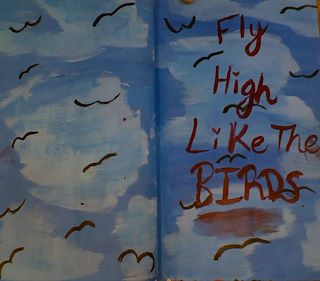 Fly
High
Like The
BIRDS